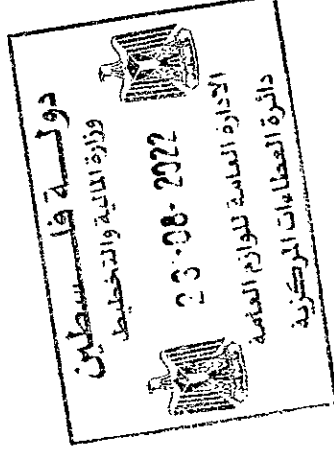 دولة فلسطين
وزارة المالية والتخطيط
23-08-2022
الادارة العامة للوازم العامة
دائرة العطاءات المركزية